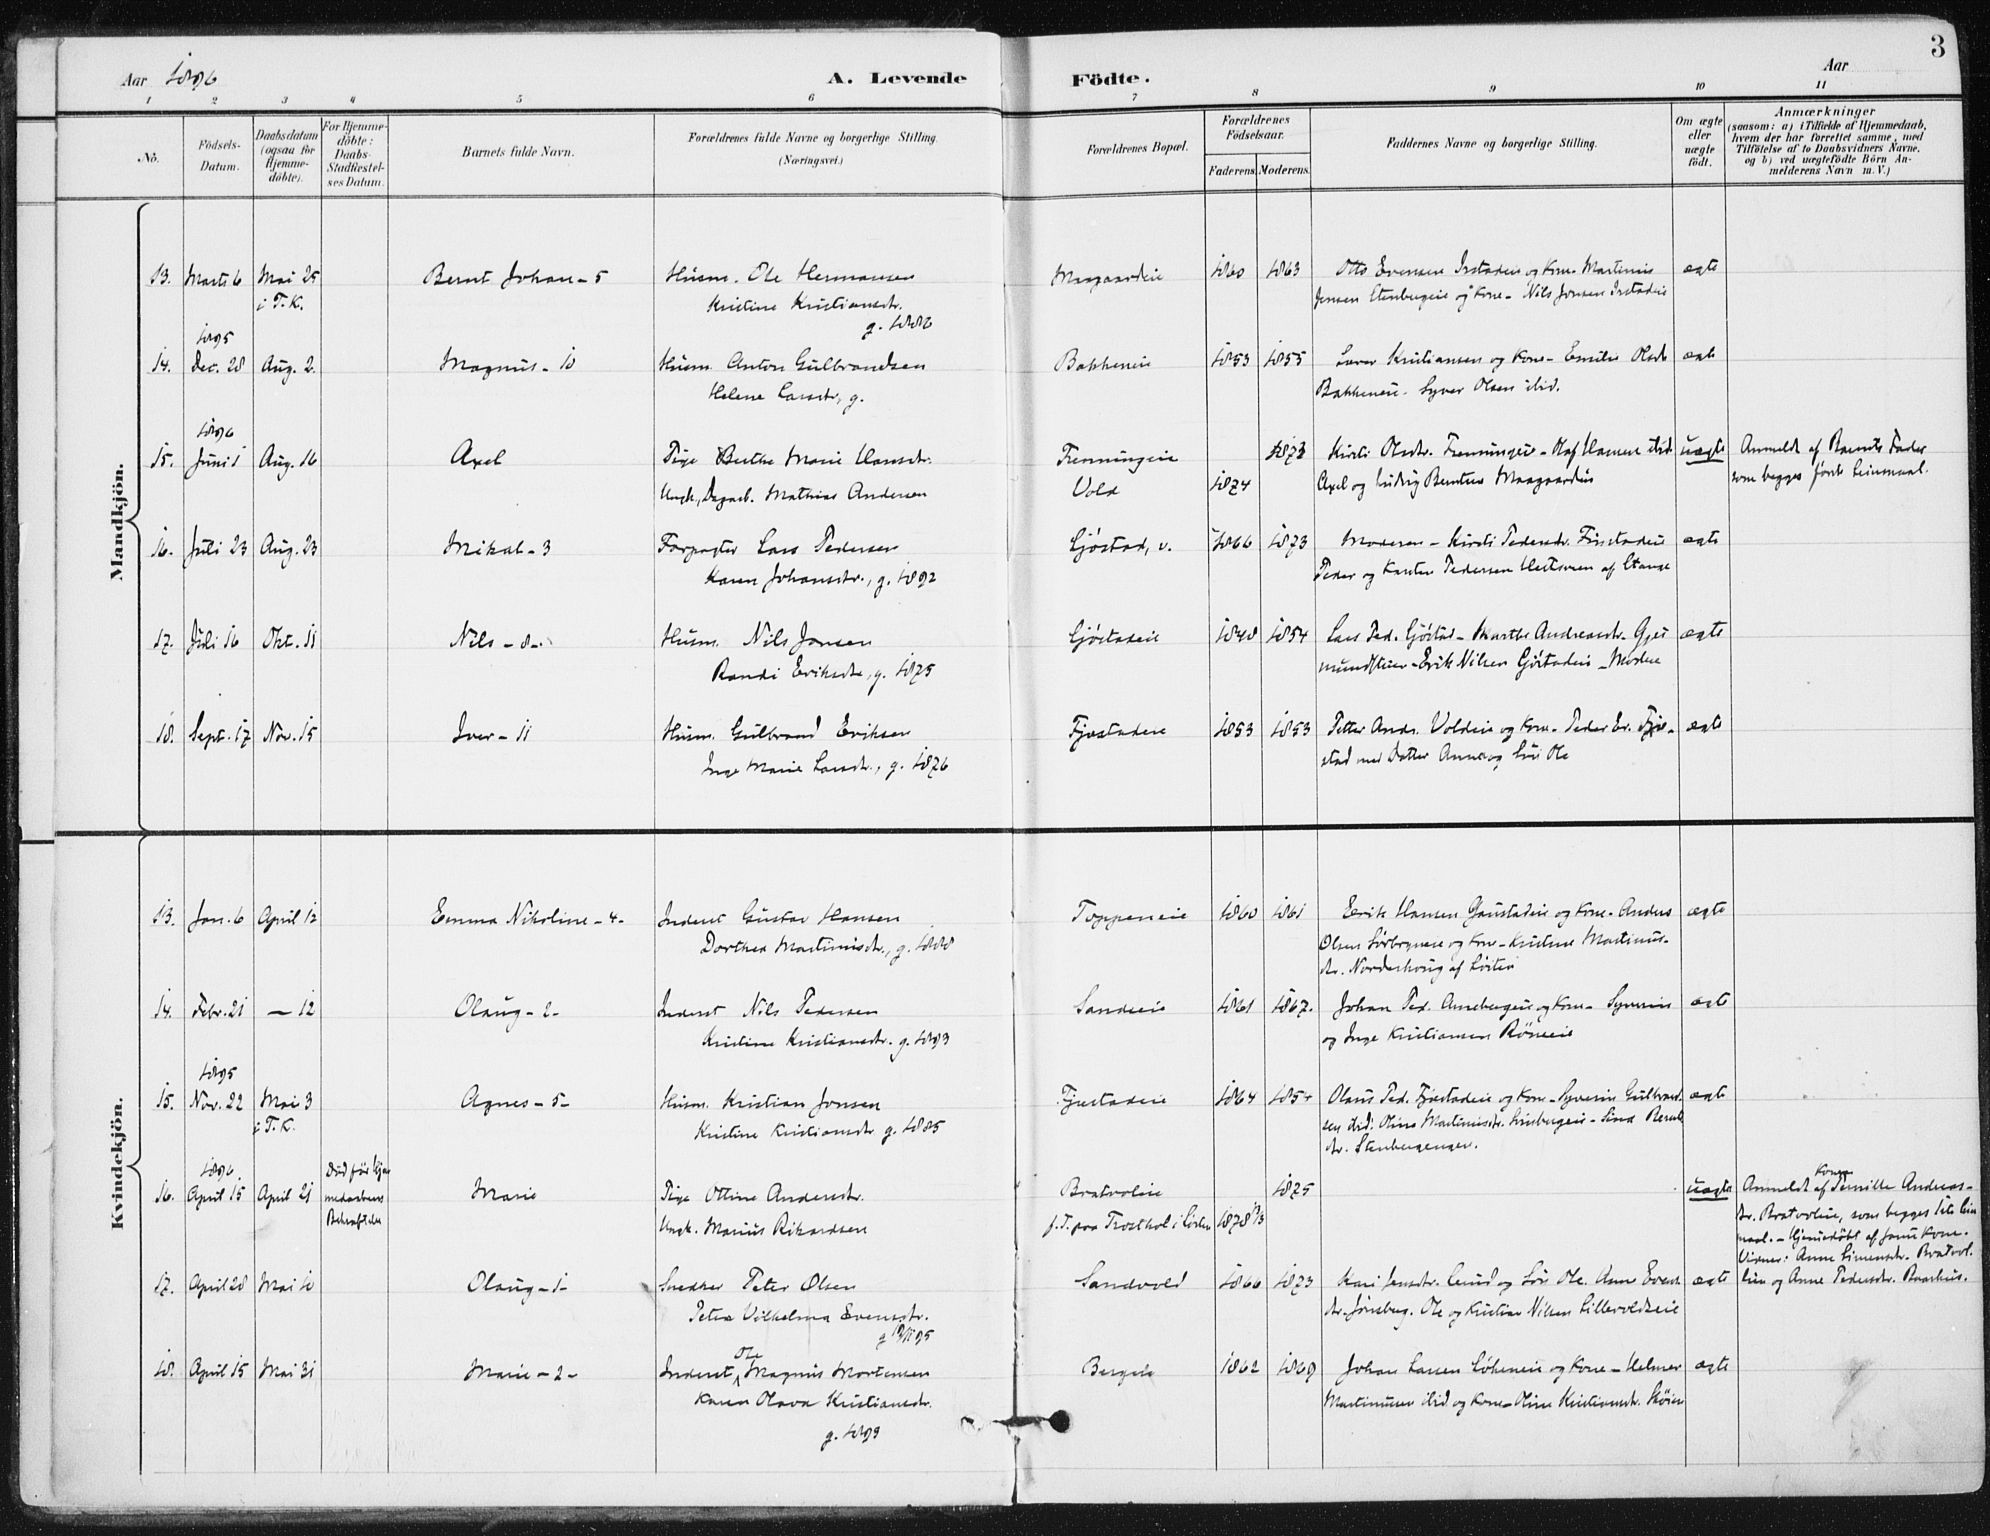 3
Aar 1896
A. Levende Födte.
Aar
1 2 3 4 5 6 7 8 9 10 11
No.
Födsels-Datum.
Daabsdatum (ogsaa for Hjemme-döbte).
For Hjemme-döbte: Daabs-Stadfæstel-ses Datum.
Barnets fulde Navn.
Forældrenes fulde Navne og borgerlige Stilling.
(Næringsvei.)
Forældrenes Bopæl.
Forældrenes Födselsaar.
Faderens. Moderens.
Faddernes Navne og borgerlige Stilling.
Om ægte eller uægte födt.
Anmærkninger
(saasom: a) i Tilfælde af Hjemmedaab,
hvem der har forrettet samme, med
Tilföielse af to Daabsvidners Navne,
og b) ved uægtefödte Börn An-
melderens Navn m. V.)
Mandkjön.
13. Marts 6 Mai 25 Bernt Johan - 5 Husm. Ole Hermansen Maagaardeie 1860 1863 Otto Evensen Irstadeie og Kone - Martinus ægte
i T. K. Kristine Kristiansdr. Jensen Stenbergeie og Kone - Nils Jonsen Irstadeie
g. 1886
1895
14. Dec. 28 Aug. 2 Magnus - 10 Husm. Anton Gulbrandsen Bakkeneie 1853 1855 Lars Kristiansen og Kone - Emilie Olsdr. ægte
Helene Larsdr., g. Bakkeneie - Syver Olsen ibid.
1896
15. Juni 1 Aug. 16 Axel Pige Berthe Marie Hansdr. Frenningeie 1873 Kirsti Olsdr. Frenningeie - Olaf Hansen ibid uægte Anmeldt af Barnets Fader
Ungk., Dagarb. Mathias Andersen Vold 1874 Axel og Ludvig Berntsen Maagaardeie som begges förste Leiermaal.
16. Juli 23 Aug. 23 Mikal - 3 Forpagter Lars Pedersen Gjöstad, v. 1866 1873 Moderen - Kirsti Pedersdr. Finstadeie ægte
Karen Johansdr., g. 1892 Peder og Karsten Pedersen af Stange
17. Juli 16 Okt. 11 Nils - 8 - Husm. Nils Jonsen Gjöstadeie 1848 1854 Lars Ped. Gjöstad - Marthe Andreasdr. ægte
Randi Eriksdr., g. 1875 Erik Nilsen Gjöstadeie - Moder
18. Sept. 17 Nov. 15 Iver - 11 Husm. Gulbrand Eriksen Fjæstadeie 1853 1853 Petter Andr. Voldeie og Kone - Peder Er. Fjæ- ægte
Inge Marie Larsdr., g. 1876 stad med Datter Anna og Sön Ole
Kvindekjön.
13. Jan. 6 April 12 Emma Nikoline - 4 - Inderst Gustav Hansen Toppeneie 1860 1861 Erik Hansen Gaustadeie og Kone - Anders ægte
Dorthea Martinusdr., g. 1888 Olsen Sörbryneie og Kone - Kristine Martinus-
dr. Norderhoug af Löiten
14. Febr. 21 — 12 Olaug - 2 - Inderst Nils Pedersen Sandeie 1861 1867. Johan Ped. Annebergeie og Kone - Syverin ægte
Kristine Kristiansdr. g. 1893 og Inge Kristiansen Röneie
1895
15. Nov. 22 Mai 3 Agnes - 5 - Husm. Kristian Jonsen Fjæstadeie 1864 1854 Olaus Ped. Fjæstadeie og Kone - Syverin Gulbrand- ægte
i T. K. Kristine Kristiansdr. g. 1885 sen ibid. Olina Martinusdr.
dr. Stenbergenger.
1896
16. April 15 April 21 Död för Hjem- Marie Pige Ottine Andersdr. Bratvoldeie 1875 uægte Anmeldt af Konen Pernille Andreas-
medaabens Bekræftelse Ungk. Marius Rikardsen p. T. paa Trosthol i Löiten 1878 dr. Bratvoldeie, som begges 1ste Leier-
maal. - Hjemmedöbt af samme Kone.
Vidner: Anne Simensdr. Bratvol-
17. April 28 Mai 10 Olaug - 1 - Snedker Peter Olsen Sandvold 1866 1873 Kari Jensdr. og Sön Ole. Anne Evens- ægte deie og Anne Pedersdr. Baarhus.
Petra Vilhelma Evensdr. dr. Jönsberg. Ole og Kristine Nilsen Lillevoldseie
18. April 15 Mai 31 Marie - 2 - Inderst Ole Magnus Mortensen Bergeie 1862 1869 Johan Larsen Lökeneie og Kone - Helmer ægte
Karen Olava Kristiansdr. Martinusen ibid og Kone - Oline Kristiansdr. Skören
g. 1893